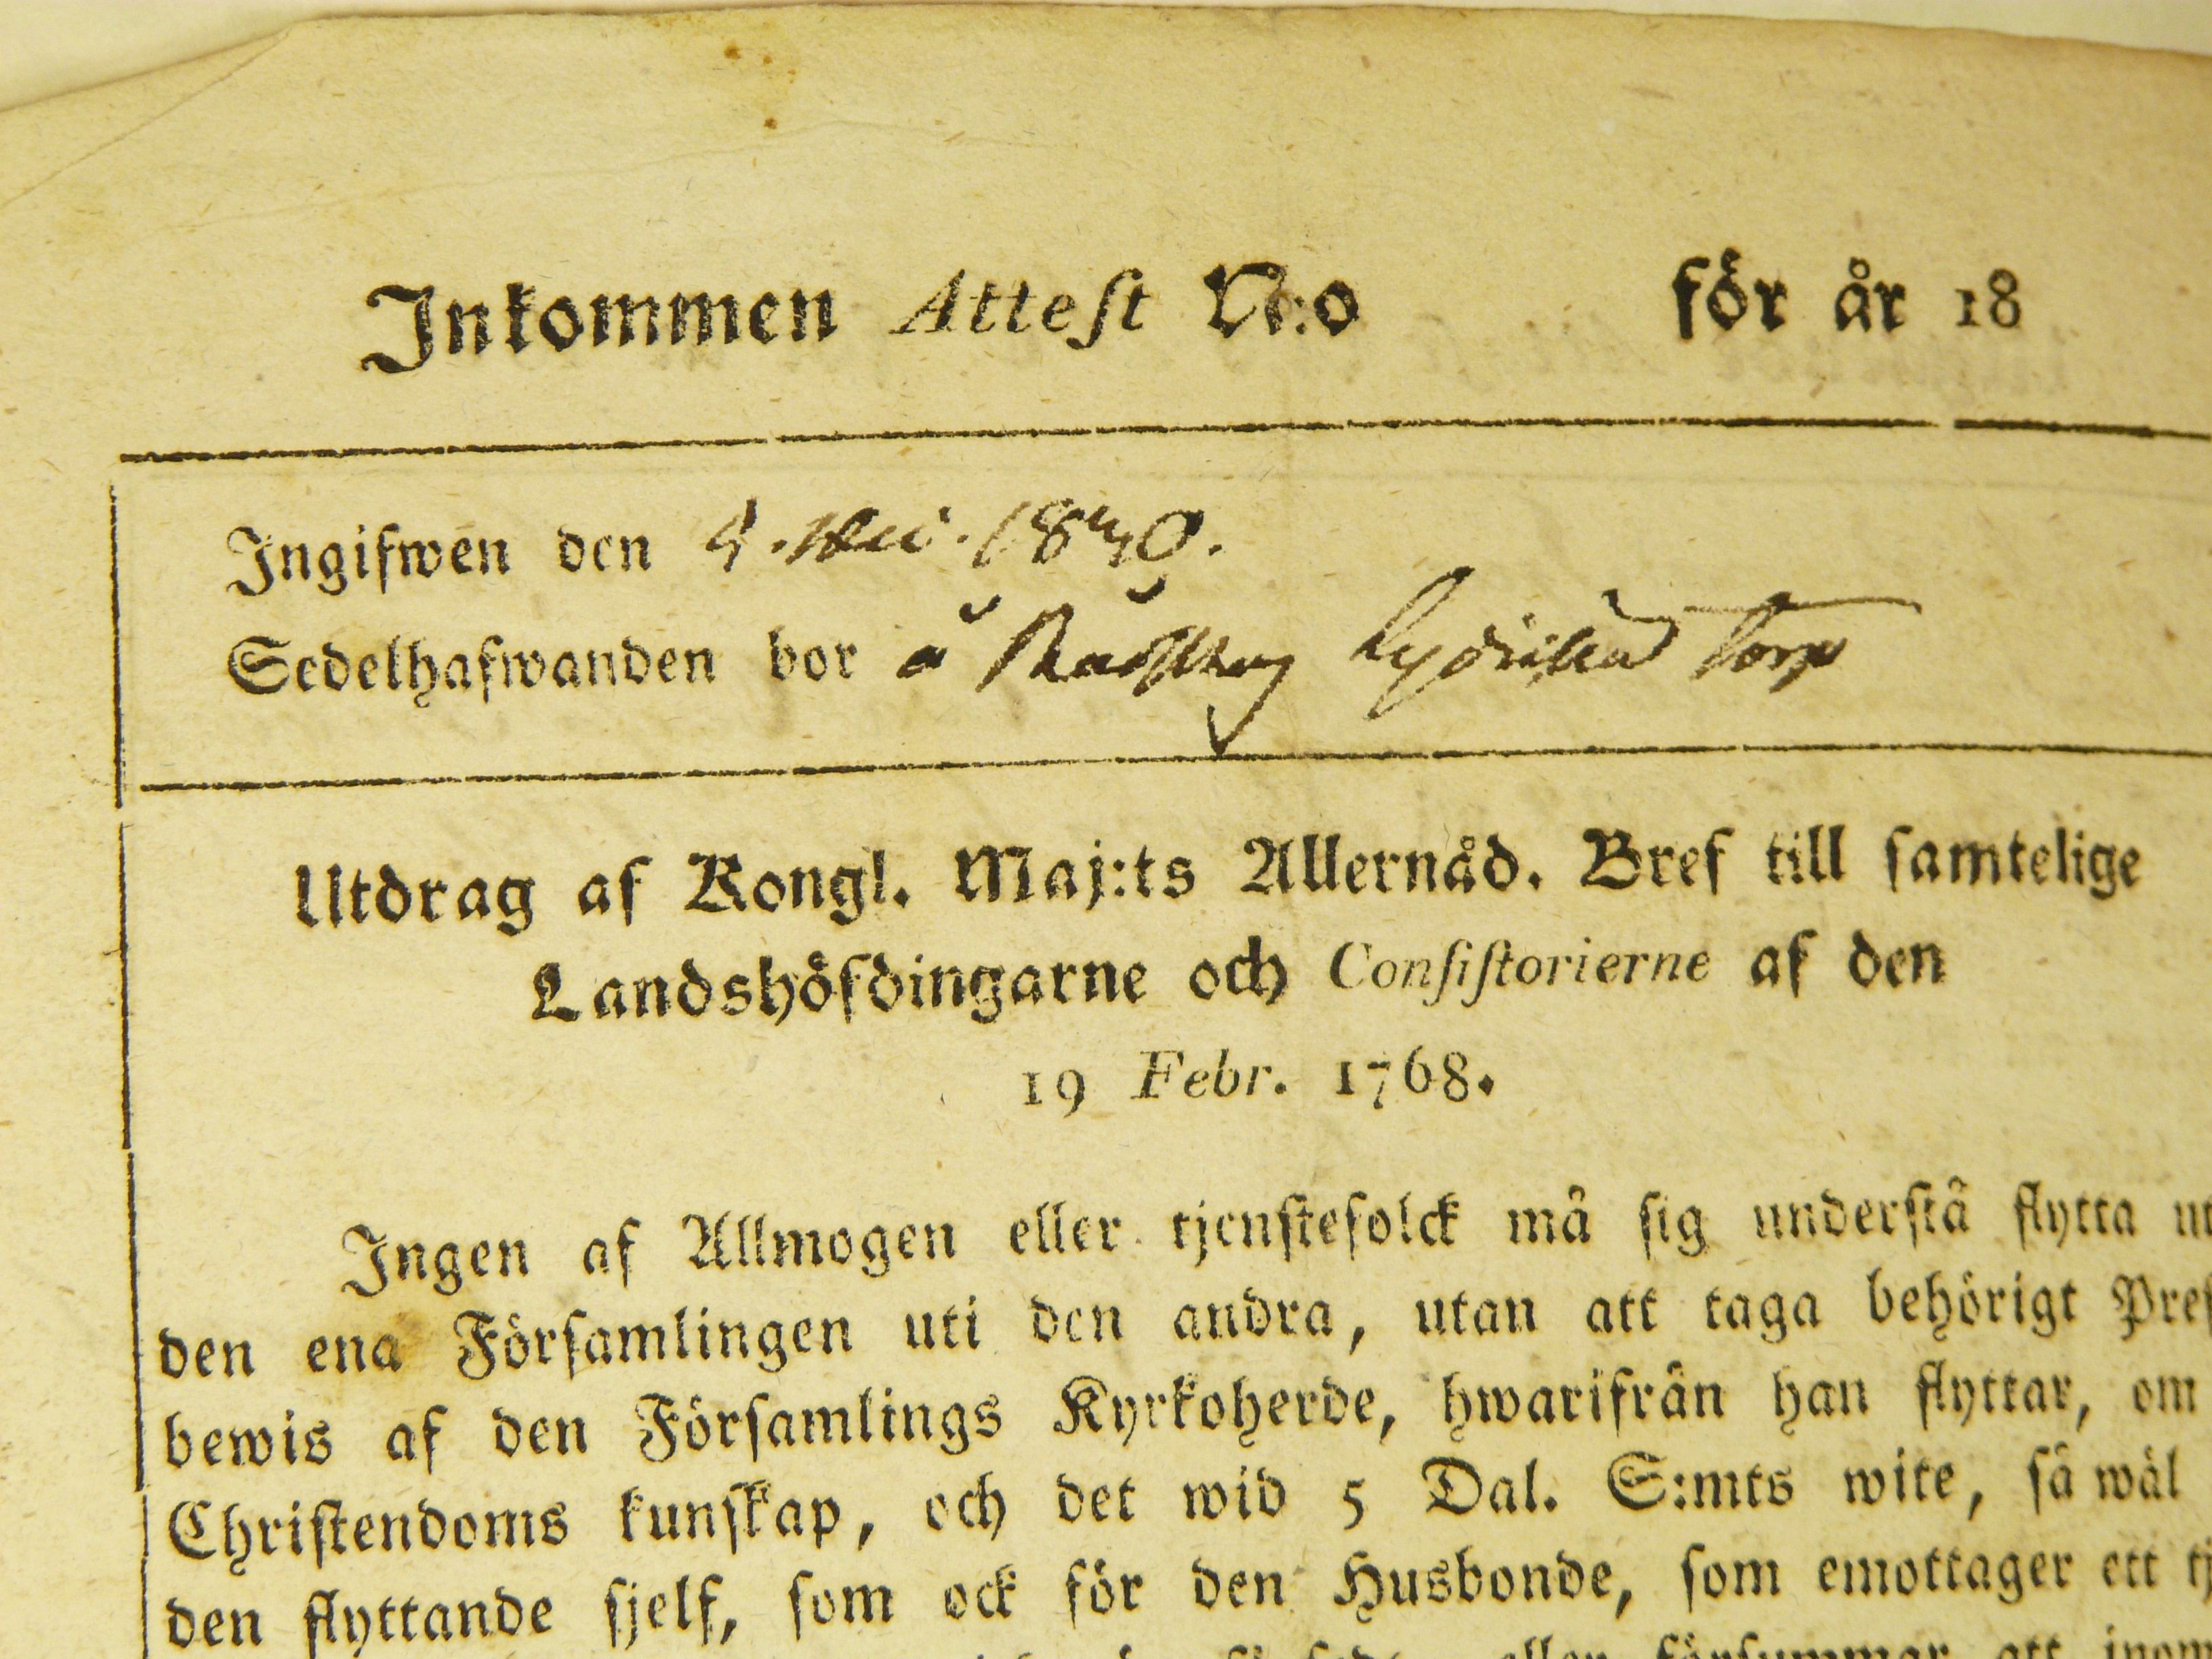 Inkommen Attest N:o för år 18
Ingifwen den
Sedelhafwanden bor å Torp
Utdrag af Kongl. Maj:ts Allernåd. Bref till samtelige
Landshöfdingarne och Consistorierne af den
19 Febr. 1768.
Ingen af Allmogen eller tjenstefolck må sig understå flytta
den ena Församlingen uti den andra, utan att taga behörigt
bewis af den Församlings Kyrkoherde, hwarifrån han flyttar, om
Christendoms kunskap, och det wid 5 Dal. S:mts wite, så wäl
den flyttande sjelf, som ock för den Husbonde, som emottager ett
eller försummar att